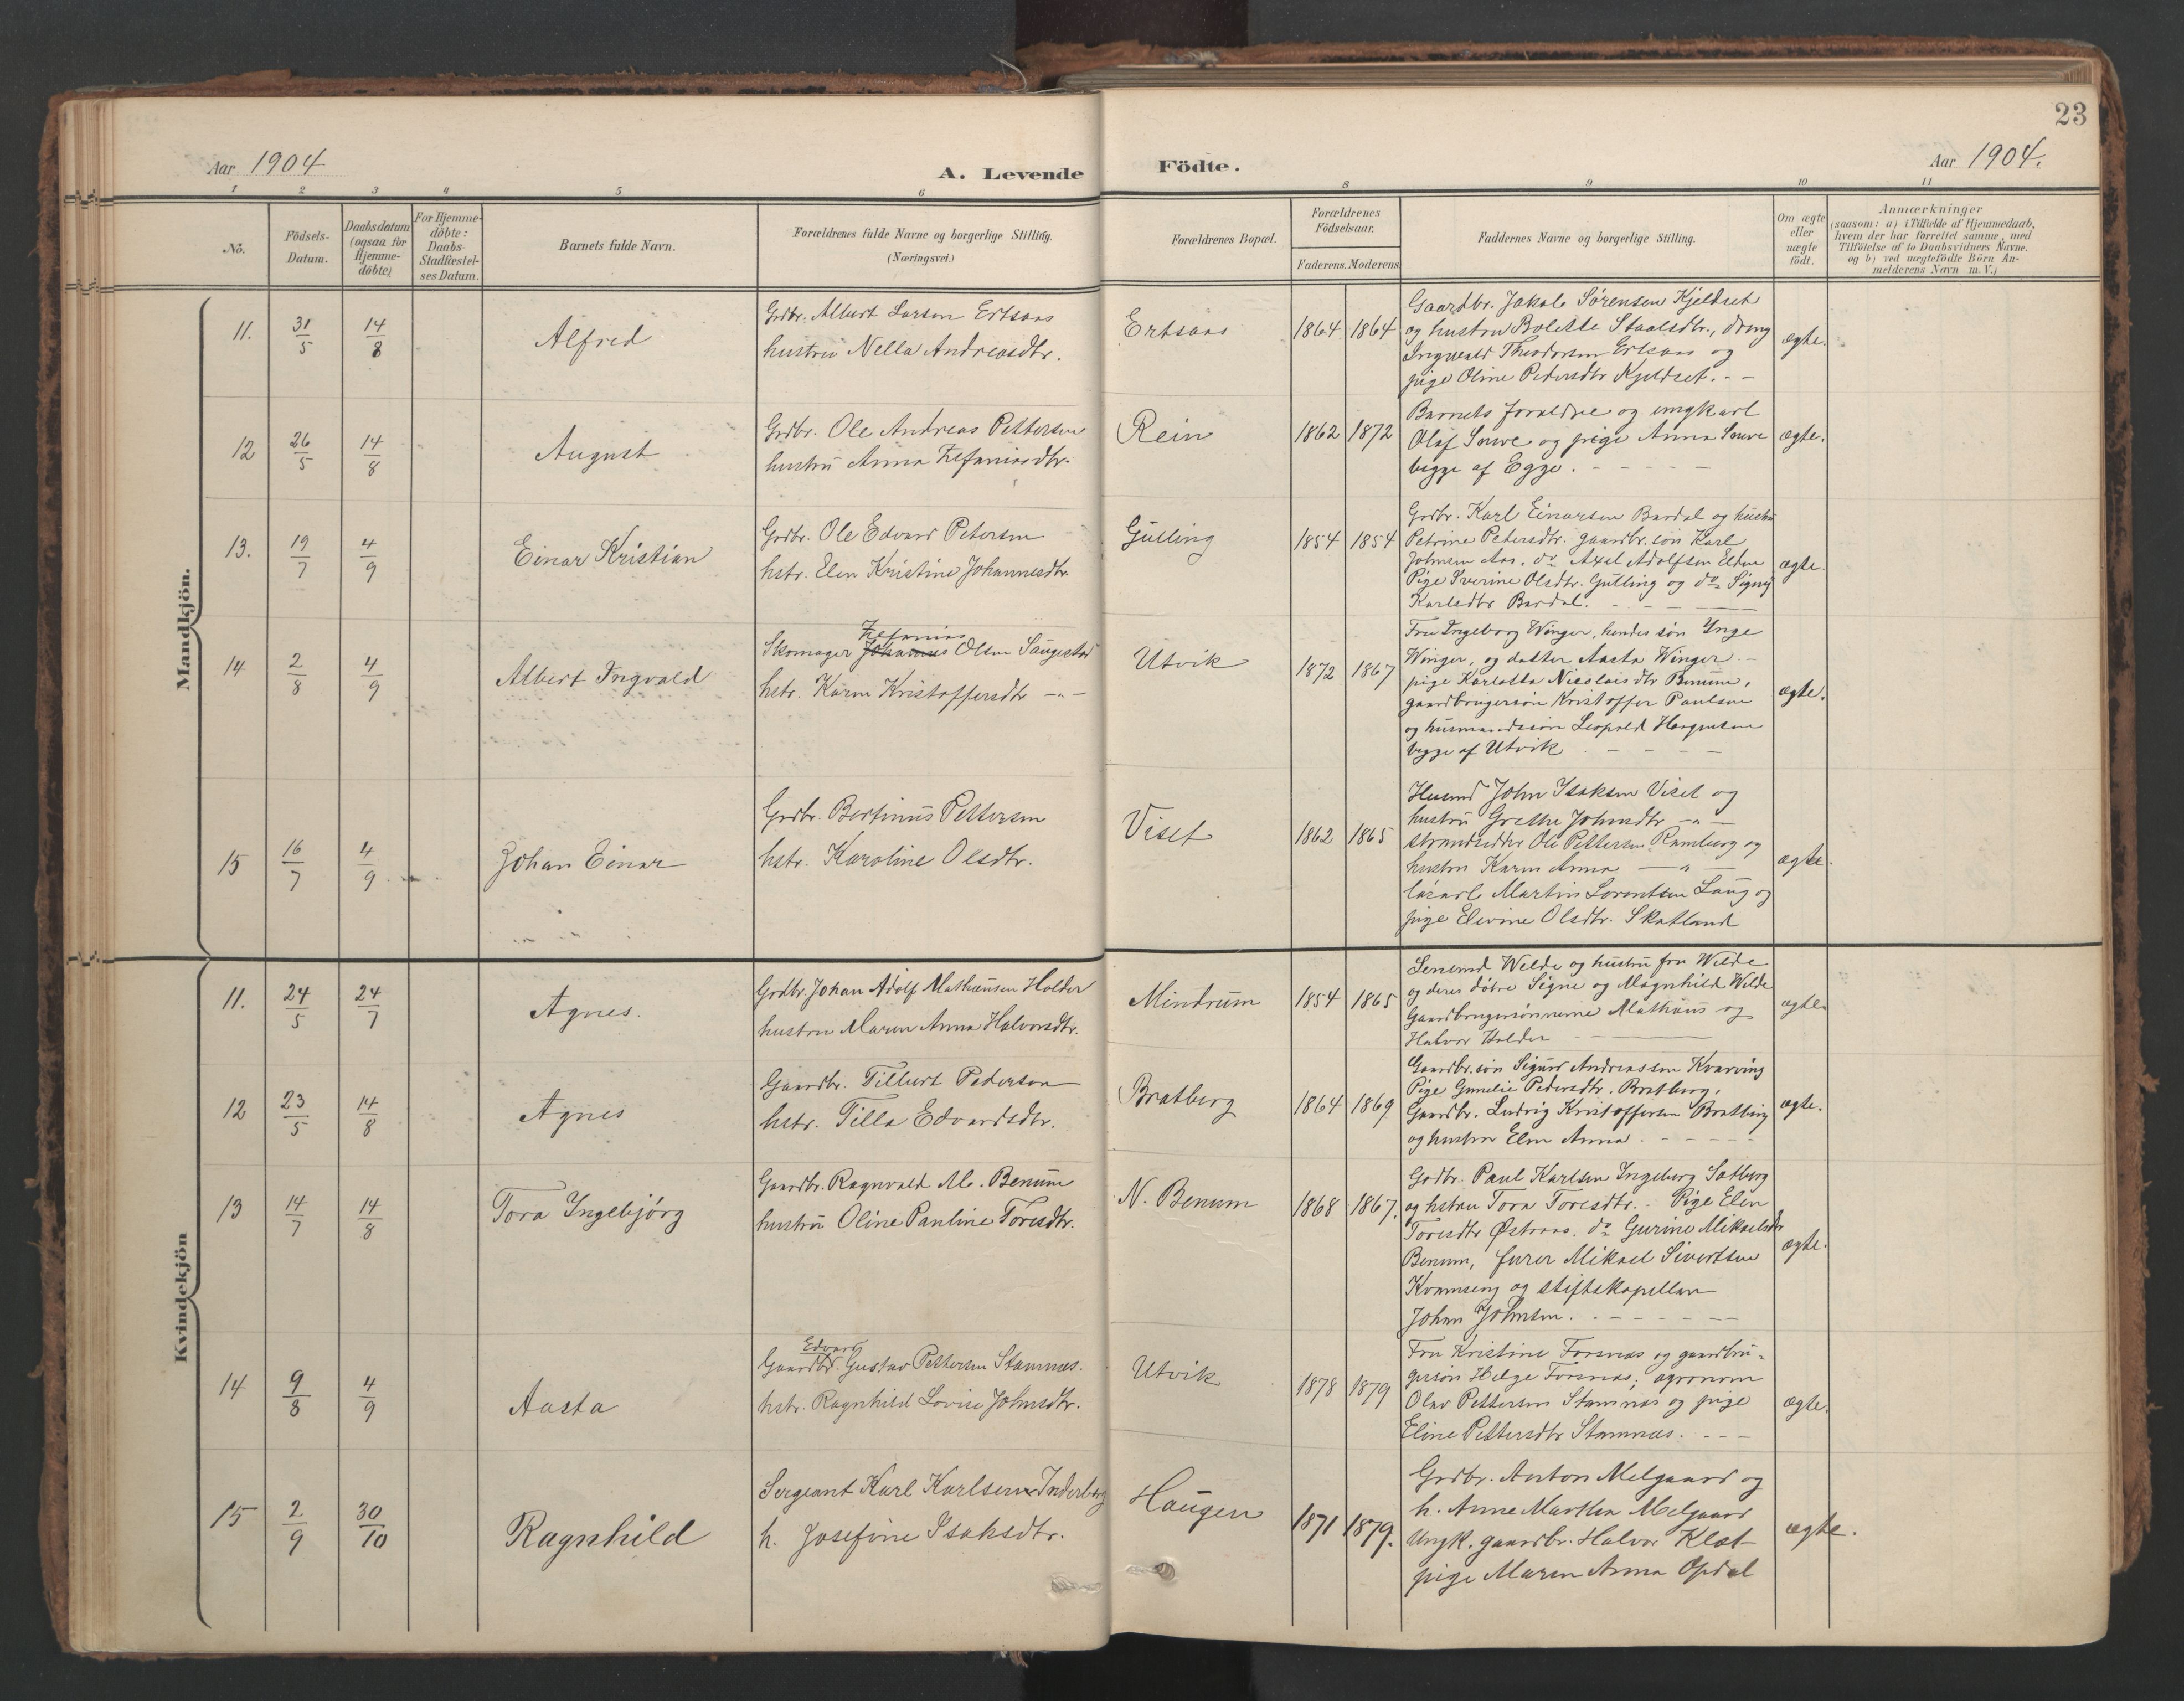 23
Aar 1904
A. Levende Födte.
Aar 1904.
1 2 3 4 5 6 8 9 10 11
No.
Födsels-
Datum.
Daabsdatum
(ogsaa for
Hjemme-
döbte)
For Hjemme-
döbte:
Daabs-
Stadfæstel-
ses Datum.
Barnets fulde Navn.
Forældrenes fulde Navne og borgerlige Stilling.
(Næringsvei.)
Forældrenes Bopæl.
Forældrenes
Födselsaar.
Faderens. Moderens
Faddernes Navne og borgerlige Stilling.
Om ægte
eller
uægte
födt.
Anmærkninger
(saasom: a) i Tilfælde af Hjemmedaab,
hvem der har forrettet samme, med
Tilföielse af to Daabsvidners Navne.
og b) ved uægtefödte Börn An-
melderens Navn m. V.)
Mandkjön.
11. 31/5 14/8 Alfred
Grdbr. Albert Larsen Ertsaas
hustru Nella Andreasdtr.
Ertsaas 1864 1864
Gaardbr. Jakob Sørensen Kjeldset
og hustru Bolette Staalsdtr., dreng
Ingvald Theodorsen Ertsaas og
pige Oline Pedersdtr Kjeldset. - -
ægte.
12 26/5 14/8 August
Grdbr. Ole Andreas Pettersen
hustru Anna Zefaniasdtr.
Rein 1862 1872
Barnets forældre og ungkarl
Olaf Snave og pige Anna Snave
begge af Egge. - - - - -
ægte.
13. 19/7 4/9 Einar Kristian
Grdbr. Ole Edvard Petersen
hstr. Elen Kristine Johannesdtr
Gulling 1854 1854
Grdbr. Karl Einarsen Bardal og hustru
Petrine Petersdtr. gaardbr.søn Karl
Johnsen Aas. do Axel Adolfsen Elden
Pige Sverine Olsdtr. Gulling og do Signy
Karlsdtr Bardal. - - -
ægte.
14 2/8 4/9 Albert Ingvald
Zefanias
Skomager Johannes Olsen Saugestad
hstr. Karen Kristoffersdtr -"-
Utvik 1872 1867
Fru Ingeborg Winger, hendes søn Inge
Winger, og datter Aasta Winger. -
pige Karlotta Nicolaisdtr Benum,
gaardbrugersøn Kristoffer Paulsen
og husmandssøn Leopold Haagensen
begge af Utvik - - - -
ægte.
15 16/7 4/9 Johan Einar
Grdbr. Bertinus Pettersen
hstr. Karoline Olsdtr.
Viset 1862 1865
Husmd John Isaksen Viset og
hustru Grethe Johnsdtr -"-
strandsidder Ole Pettersen Ramberg og
hustru Karen Anna -"-
Martin Lorentsen Laug og
pige Elevine Olsdtr. Skatland
ægte.
Kvindekjön
11. 24/5 24/7 Agnes.
Grdbr. Johan Adolf Mathæusen Holder
hustru Maren Anna Halvorsdtr.
Mindrum 1854 1865
Lensmd Welde og hustru fru Welde
og deres døtre Signe og Magnhild Welde
Gaardbrugersønnerne Mathæus og
Halvor Holder
ægte.
12 23/5 14/8 Agnes
Gaardbr. Tilbert Pedersen
hstr. Tilla Edvardsdtr.
Bratberg 1864 1869
Gaardbr.søn Sigurd Andreassen Kvarving
Pige Gunelie Pedersdtr. Bratberg,
Gaardbr. Ludvig Kristoffersen Bratberg
og hustru Elen Anna. - - - - -
ægte.
13 14/7 14/8 Tora Ingebjørg
Gaardbr. Ragnvald M. Benum
hustru Oline Pauline Toresdtr.
N. Benum 1868 1867.
Grdbr. Paul Karlsen Ingeberg Salberg
og hstru Tora Toresdtr. - Pige Elen
Toresdtr Østraas. do Gurine Mikaelsdtr
Benum, furer Mikael Sivertsen
Kvamseng og stiftskapellan
Johan Johnsen. - - - - - -
ægte.
14 9/8 4/9 Aasta
Edvard
Gaardbr. Gustav Pettersen Stamnæs.
hstr. Ragnhild Lovise Johnsdtr.
Utvik 1878 1879
Fru Kristine Forsnæs og gaardbru-
gersøn Helge Forsnæs; agronom
Olav Pettersen Stamnæs og pige
Eline Pettersdtr Stamnæs. - - -
ægte.
15 2/9 30/10 Ragnhild
Sergeant Karl Karlsen Inderberg
h. Josefine Isaksdtr.
Haugen 1871 1879.
Grdbr. Anton Melgaard og
h. Anne Martha Melgaard
Ungk. gaardbr. Halvor Klæt
pige Maren Anna Opdal
ægte.